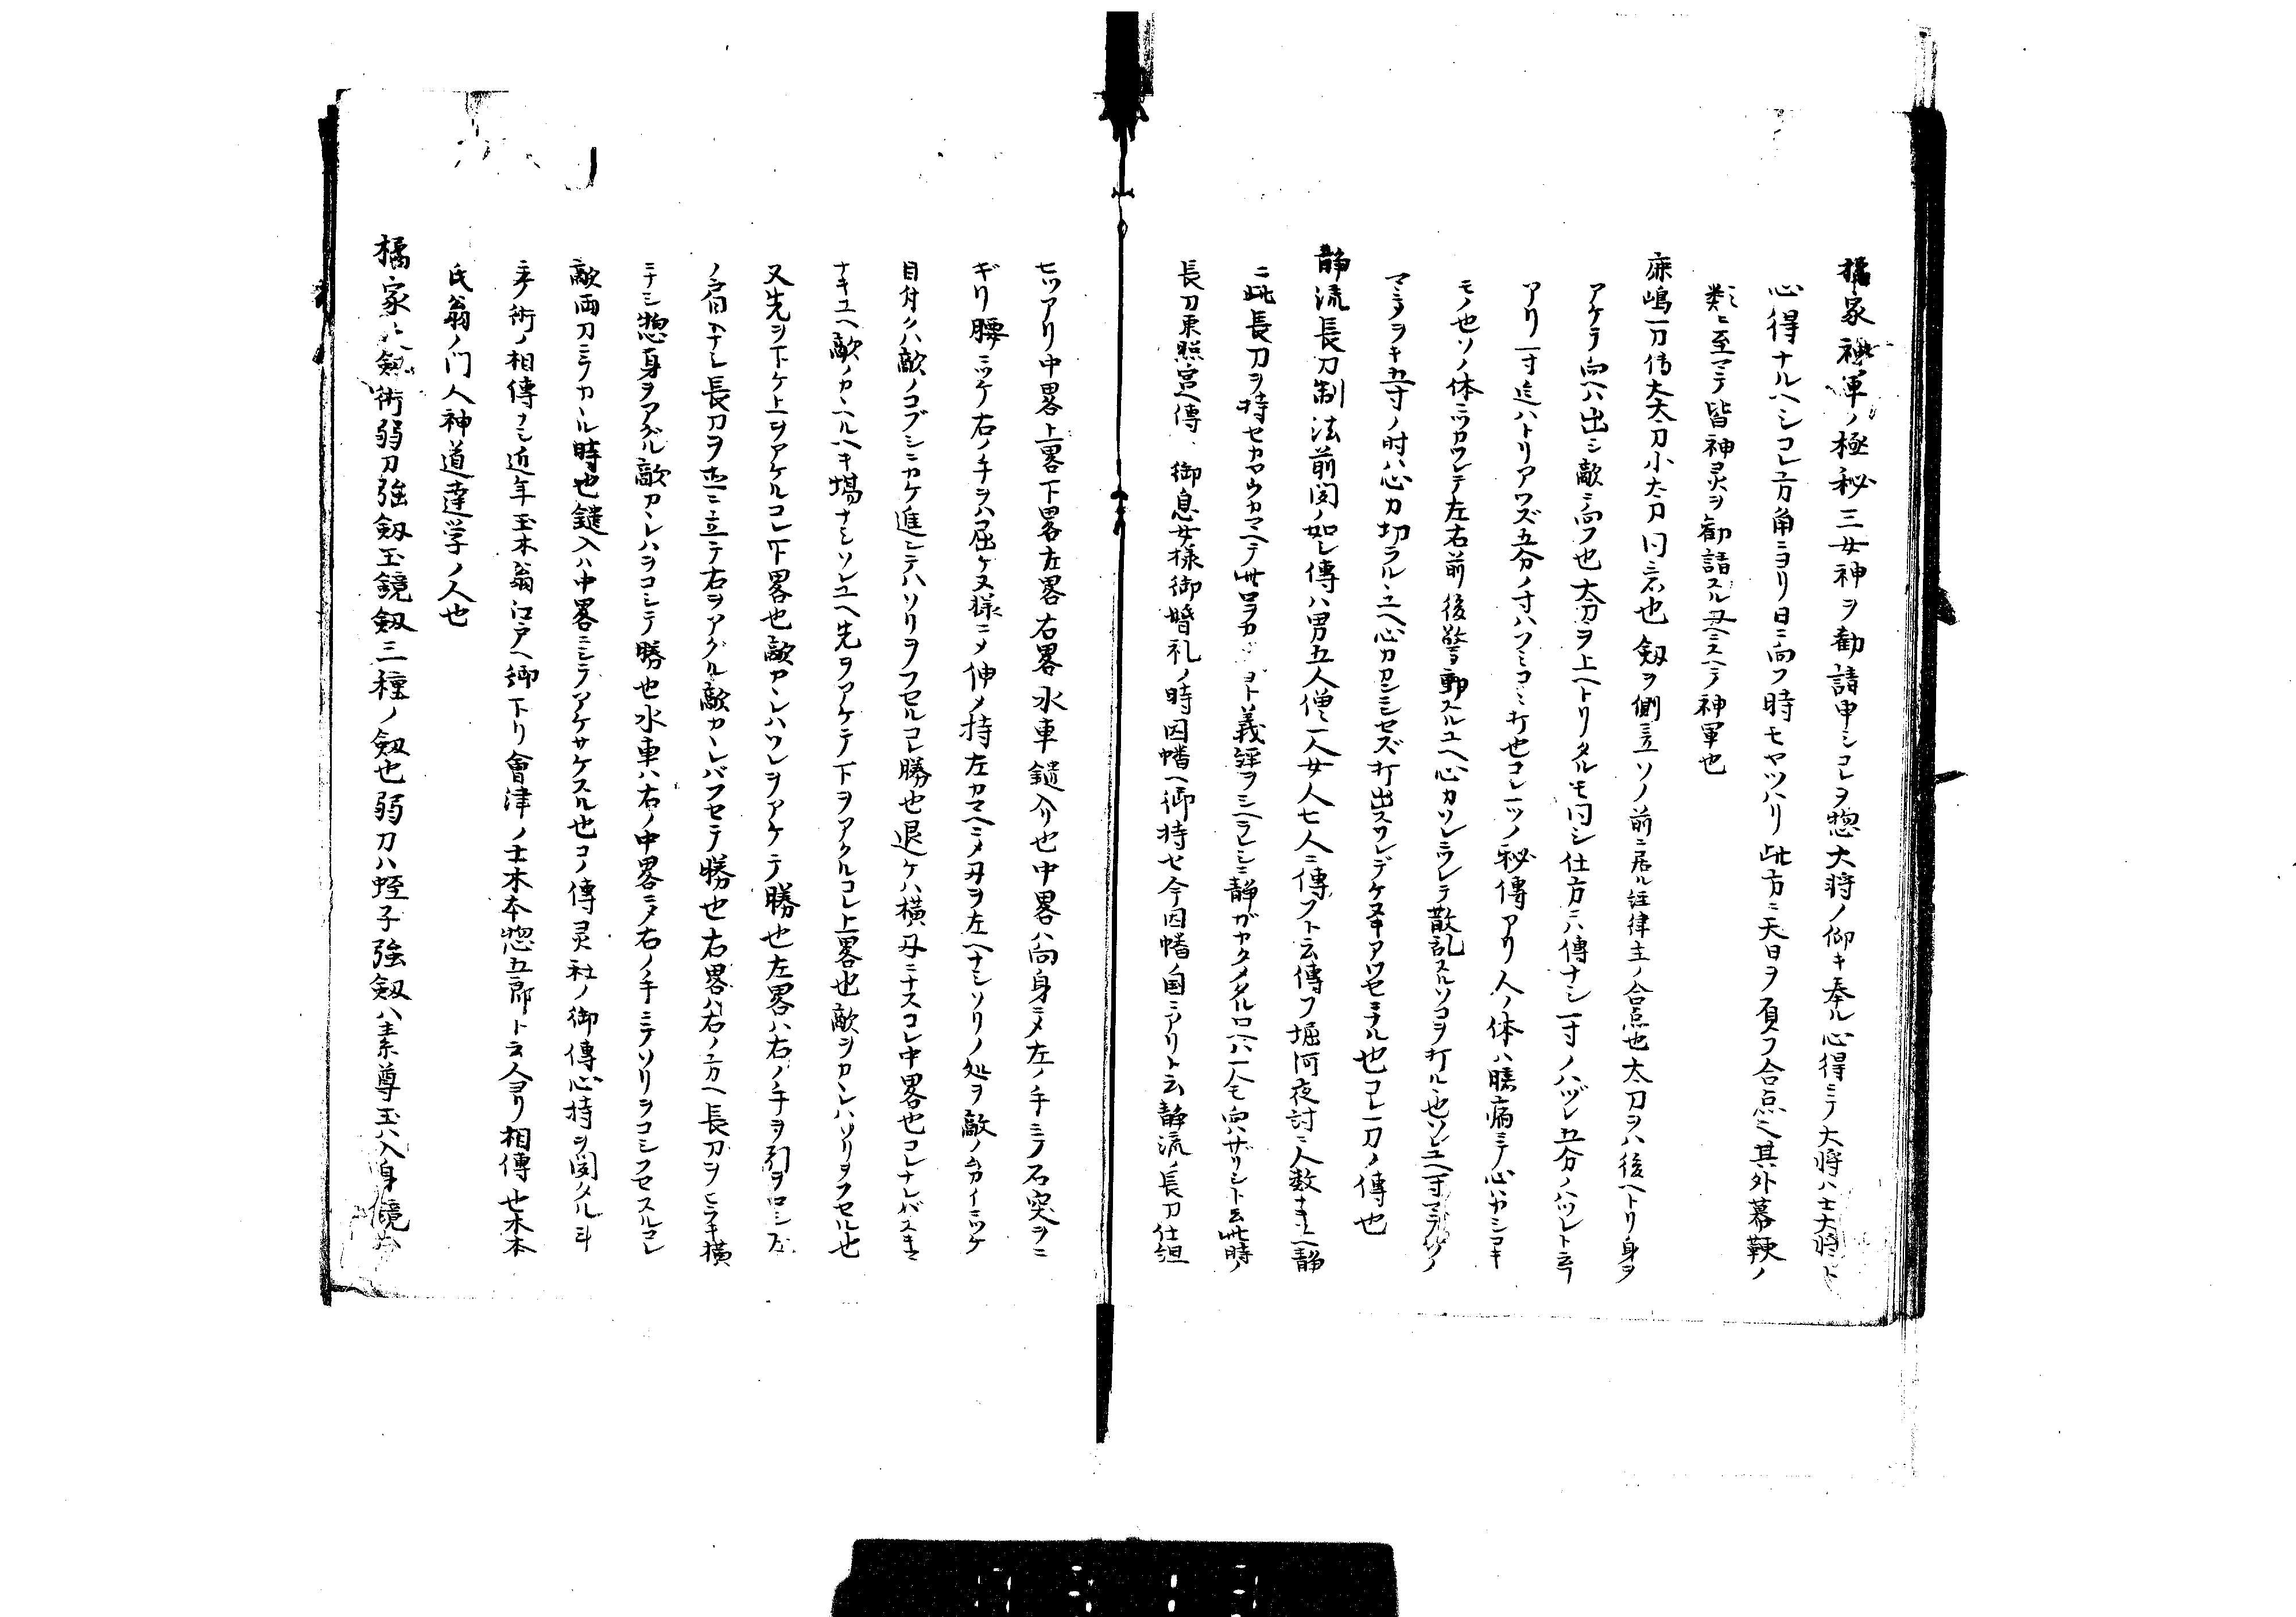 橘家神軍ノ極秘三女神ヲ勸請申シコレヲ惣大将ノ仰キ奉ル心得ニテ大将ハ士大将ト
心得ナルヘシコレ方角ニヨリ日ニ向フ時モヤツハリ此方ニ天日ヲ負フ合点也其外幕鞭ノ
類ニ至マテ皆神灵ヲ勸請スル
神軍也
嶋一刀
太刀小太刀同
也劔ヲ側ニ立ソノ前ニ居ル
ノ合点也太刀ヲハ後ヘトリ身ヲ
アケラ向ヘ出シ敵ニ向フ也太刀ヲ上ヘトリタルモ同シ仕方ニハ傳ナシ一寸ノハヅレ五分ノハツレト云フ
アリ一寸
ハトリアワズ五分ノ寸ハフミコミ打也コレ一ツノ秘傳アリ人ノ体ハ臆病ニテ心ハヤシコキ
モノ也ソノ体ニツカワレテ左右前後驚動スルユヘ心カツレラレテ散乱スルソコヲ打ル也ソレユヘ一寸マデハソノ
マヽヲキ五寸ノ時ハ心カ切ラルヽユヘ心カカンシセズ打出スワレデケヌキアワセニナル也コレ一刀ノ傳也
静流長刀制法前図ノ如シ傳ハ男五人僧一人女一人七人ニ傳フト云傳フ堀河夜討ニ人数ナキユヘ静
ニ此長刀ヲ持セカヤウカマヘテ此口ヲカ
ヨト義経ヲシヘラレシニ静ガカタメタル口ヘハ一人モ向ハザリシト云此時ノ
長刀東照宮ヘ傳、御息女様御婚礼ノ時因幡ヘ御持セ今因幡ノ国ニアリト云静流ノ長刀仕
七ツアリ中畧上畧下畧左畧右畧水車鑓入リ也中畧ハ向身ニメ左ノ手ニテ石突ヲニ
ギリ腰ニツケ右ノ手ヲハ屈ケヌ様ニメ伸メ持左カマヘニメ刃ヲ左ヘナシソリノ処ヲ敵ノ
目付ケハ敵ノコブシニカケ進シテハソリヲフセルコレ勝也退ケハ横刃ニナスコレ中畧也コレナレバスキマ
ナキユヘ敵ノカヽルヘキ場ナシソレユヘ先ヲアケテ下ヲアクルコレ上畧也敵ヲカヽレハソリヲフセル也
又先ヲ下ケ上ヲアケルコレ下畧也敵カヽレハワレヲアケテ勝也左畧ハ右ノ手ヲ引ヲロシ左
ノ肩
ナシ長刀ヲ
ニ立テ右ヲアグル敵カヽレバフセテ勝也右畧ハ右ノ方ヘ長刀ヲヒラキ横
ニナシ惣身ヲアグル敵カヽレハヲコシテ勝也水車ハ右ノ中畧ニメ右ノ手ニテソリヲコシフセスルコレ
敵両刀ニテカヽル時也鑓入ハ中畧ニシテアケサケスル也コノ傳灵社ノ御傳心持ヲ図タル斗
ニテ術ノ相傳ナシ近年玉木翁江戸ヘ御下リ會津ノ士木本惣五郎ト云人ヨリ相傳也木本
氏翁ノ門人神道達学ノ人也
橘家ハ劔術弱刀強劔玉鏡劔三種ノ劔也弱刀ハ蛭子強劔ハ素尊玉ハ入身鏡